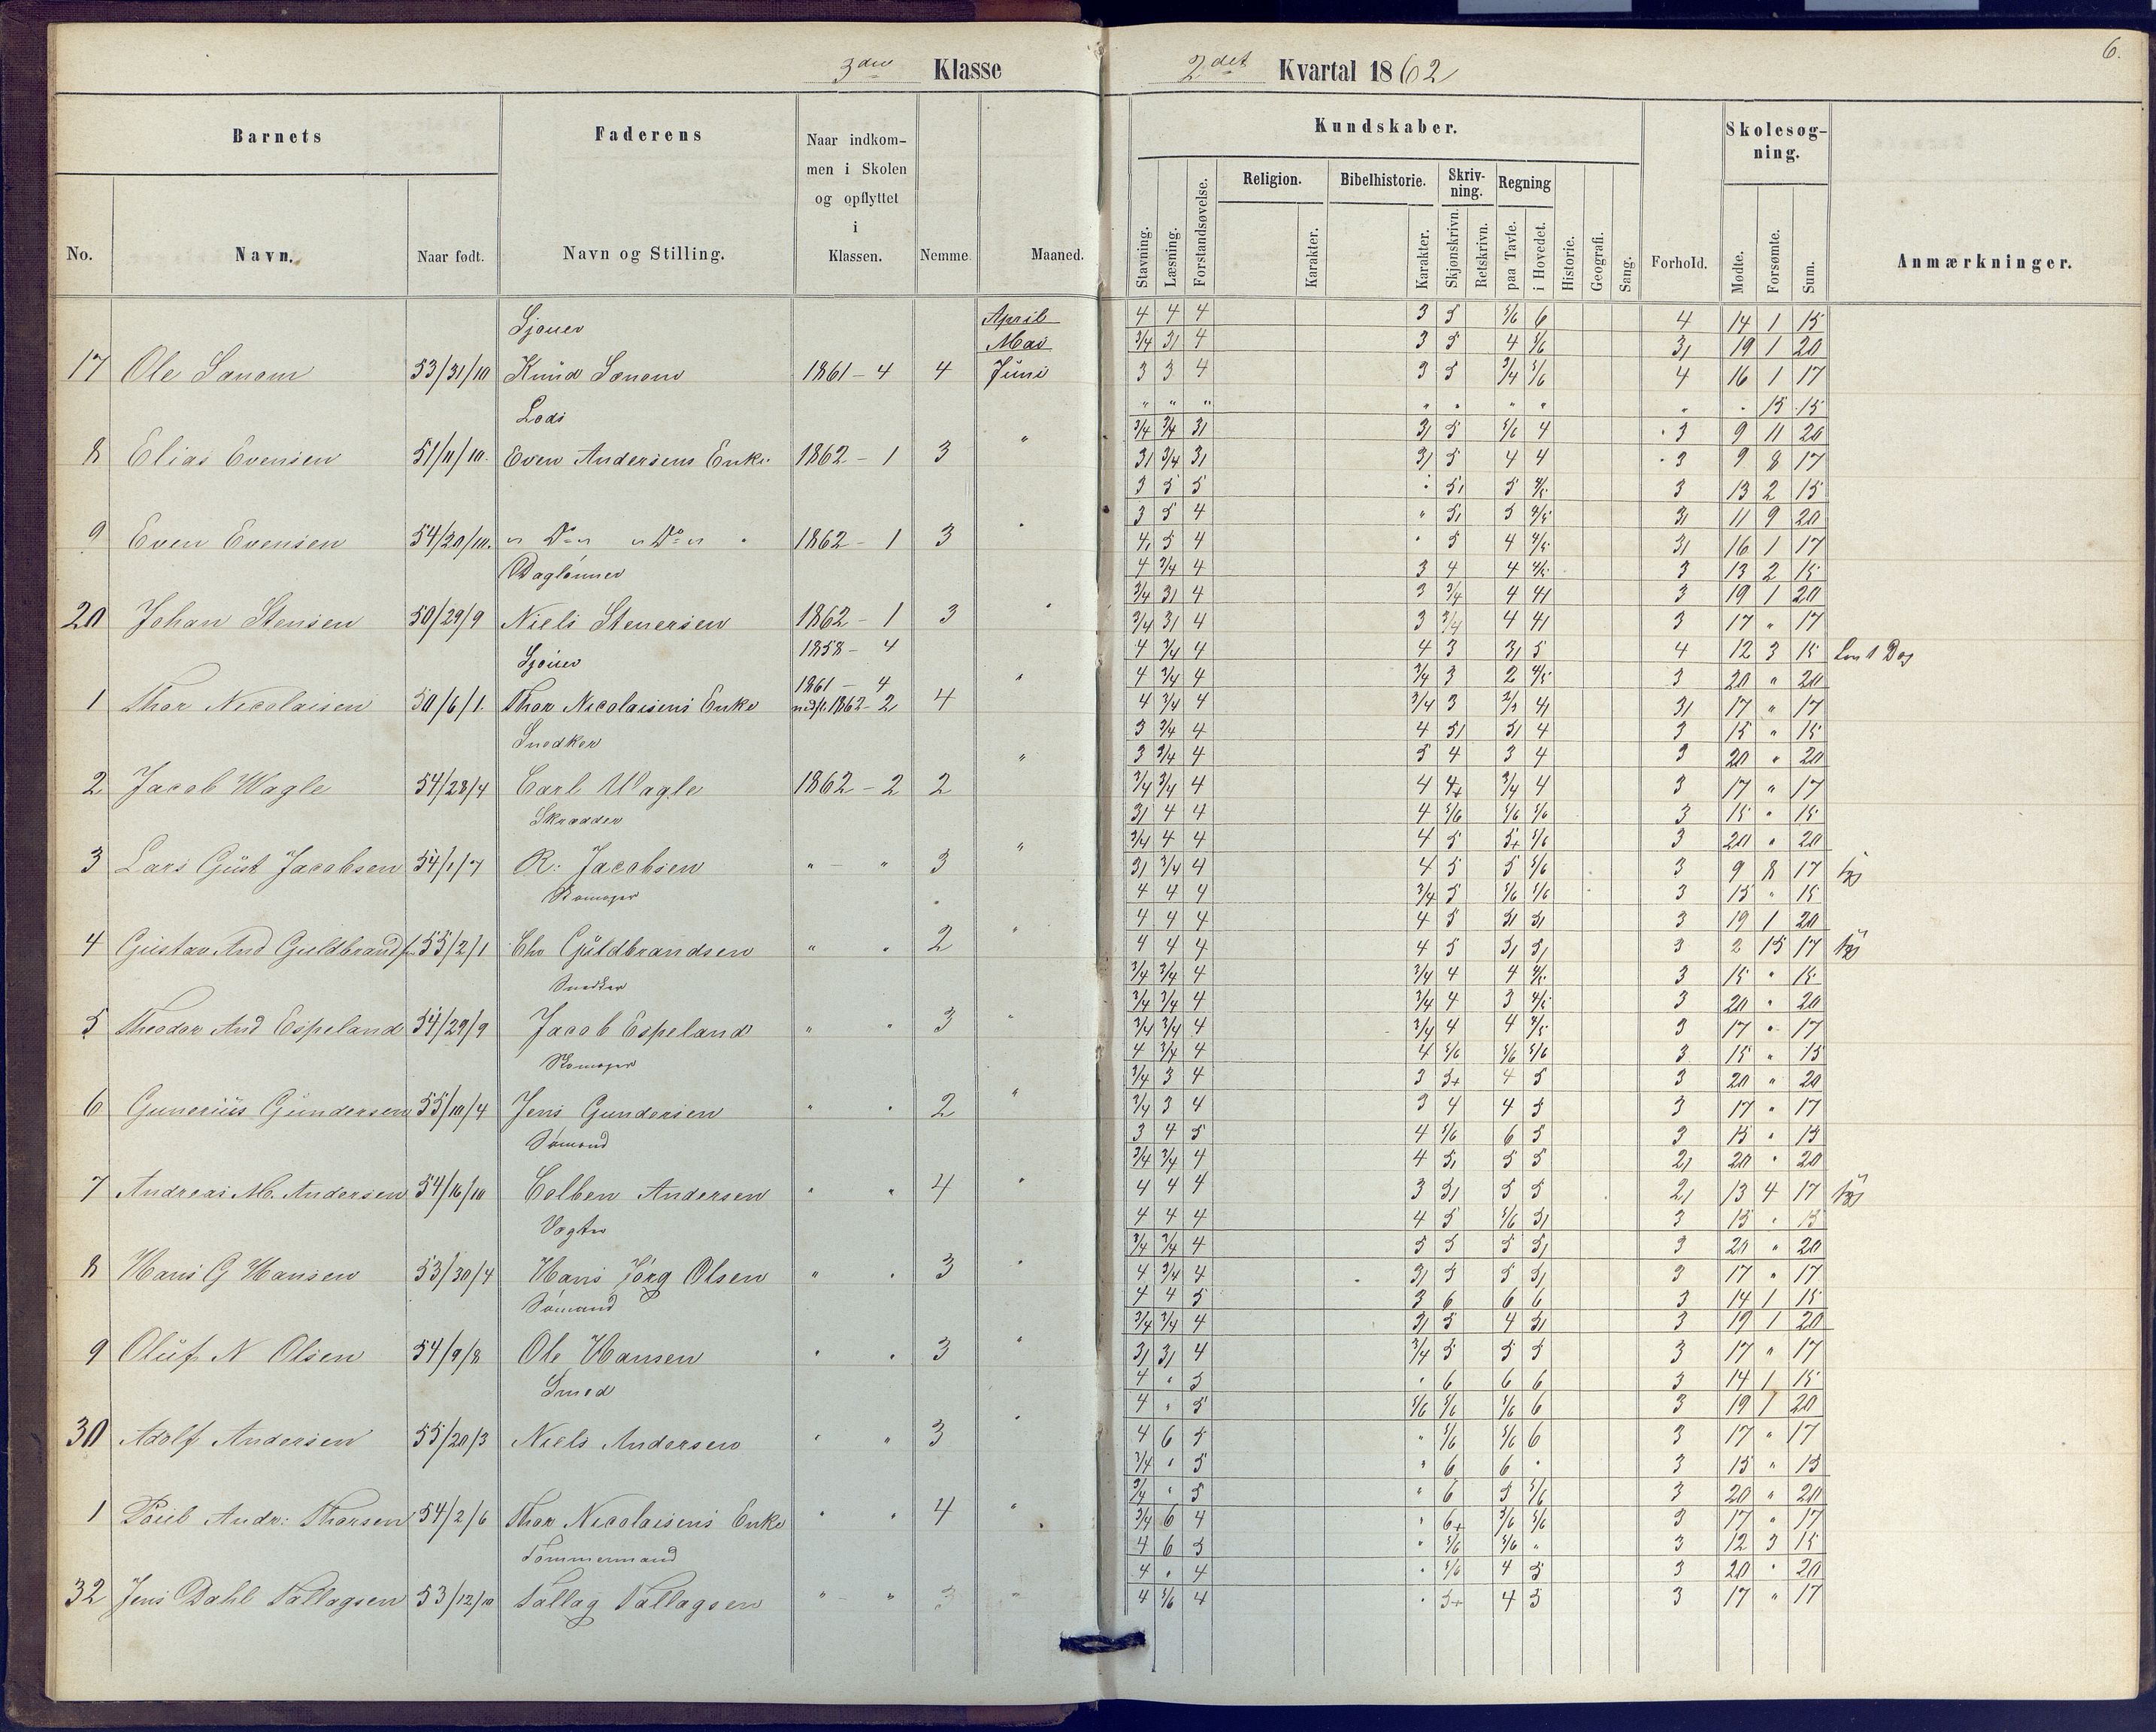 6.
3die Klasse
2det Kvartal 1862
Barnets
Faderens
Naar indkom-
men i Skolen
og opflyttet
i
Klassen.
No.
Navn.
Naar født.
Navn og Stilling.
Nemme
Maaned.
Kundskaber.
Skolesøg-
ning.
Religion.
Bibelhistorie.
Skriv-
ning.
Regning
Stavning.
Læsning.
Forstandsøvelse.
Karakter.
Karakter.
Skjønskrivn.
Retskrivn.
paa Tavle.
i Hovedet.
Historie.
Geografi.
Sang.
Forhold.
Mødte.
Forsømte.
Sum.
Anmærkninger.
Sjouer April 4 4 4 3 5 5/6 6 4 14 1 15
Mai 3/4 3/ 4 3 5 4 5/6 3/ 19 1 20
17 Ole 53/31/10 Knud 1861-4 4 Juni 3 3 4 3 5 3/4 5/6 4 16 1 17
Lods " " " " " " " " " 15 15
3/4 3/4 3/ 3/ 5 5/6 4 3 9 11 20
8 Elias Evensen 51/11/10. Even Andersens Enke 1862-1 3 " 3/ 3/4 3/ 3/ 5 4 4 3 9 8 17
3 5 5 " 5/ 5 4/5 3 13 2 15
3 5 4 " 5/ 5 4/5 3/ 11 9 20
9 Even Evensen 54/20/10. " Do " " Do " 1862-1 3 " 4/ 5 4 " 5 4 4/5 3/ 16 1 17
Daglønner 4 3/4 4 3 4 4 4/5 3 13 2 15
3/4 3/ 4 3 3/4 4 4/ 3 19 1 20
20 Johan Stensen 50/29/9 Niels Stenersen 1862-1 3 " 3/4 3/ 4 3 3/4 4 4/ 3 17 " 17
Sjouer 1858-4 4 3/4 4 4 3 3/ 5 4 12 3 15
1861-4 4 3/4 4 3/4 3 2 4/5 3 20 " 20
1 Thor Nicolaisen 50/6/1. Thor Nicolaisens Enke nedfl. 1862-2 4 " 4 3/4 4 3/4 3 2/3 4/ 3/ 17 " 17
Snedker 3 3/4 4 4 5/ 3/ 4 3 15 " 15
3 3/4 4 5 4 3 4 3 20 " 20
2 Jacob Wagle 54/28/4 Carl Wagle 1862-2 2 " 3/4 3/4 4 4 4+ 3/4 4 3 17 " 17
Skrædder 3/ 4 4 4 5/6 5/6 5/6 3 15 " 15
3/4 4 4 4 5 5+ 5/6 3 20 " 20
3 Lars Gust Jacobsen 54/1/7 R. Jacobsen " - " 3 " 3/ 3/4 4 4 5 5 5/6 3 9 8 17 syg
4 4 4 3/4 5 5/6 5/6 3 15 " 15
4 4 4 4 5 5/ 5/ 3 19 1 20
4 Gustav And Guldbrandsen 55/2/1 Chr Guldbrandsen " " 2 " 4 4 4 4 5 5/ 5/ 3 2 15 17 syg
Snedker 3/4 3/4 4 3/4 4 4 4/5 3 15 " 15
3/4 3/4 4 3/4 4 3 4/5 3 20 " 20
5 Theodor And Espeland 54/29/9 Jacob Espeland " " 3 " 3/4 3/4 4 3/4 4 4 4/5 3 17 " 17
4 3/4 4 4 5/6 5/6 5/6 3 15 " 15
3/4 3 4 3 5+ 4 5 3 20 " 20
6 Gunerius Gundersen 55/10/4 Jens Gundersen " " 2 " 3/4 3 4 3 4 4 5 3 17 " 17
Sømand 3 4 5 4 5/6 6 5 3 15 " 15
3/4 3/4 4 4 5/ 5 5 2/ 20 " 20
7 Andreas M. Andersen 54/16/10 Colben Andersen " " 4 " 4 4 4 3 5/ 5 5 2/ 13 4 17 syg
Vægter 4 4 4 4 5 5/6 5/ 3 15 " 15
3/4 3/4 4 5 5 5 5/ 3 20 " 20
8 Hans G Hansen 53/30/4 Hans Jørg Olsen " " 3 " 4 3/4 4 3/ 5 5 5/ 3 17 " 17
Sømand 4 4 5 3 6 6 6 3 14 1 15
3/4 3/4 4 3/ 5 4 5/ 3 19 1 20
9 Oluf N Olsen 54/9/8 Ole Hansen " " 3 " 3/ 3/ 4 3/4 5 5 5 3 17 " 17
Smed 4 " 5 " 6 6 6 3 14 1 15
4 " 5 5/6 5/6 5/6 6 3 19 1 20
30 Adolf Andersen 55/20/3 Niels Andersen " " 3 " 4 6 5 " 5/6 5/6 6 3 17 " 17
3/4 " 5 " 6 6 " 3 15 " 15
3/4 " 5 " 6 5 5/6 3 20 " 20
1 Poul Andr: Thorsen 54/2/6 Thor Nicolaisens Enke " " 4 " 3/4 6 4 " 6+ 5/6 5/6 3 17 " 17
Tømmermand 4 6 5 " 5/6 5/6 " 3 12 3 15
4 " 4 " 5/6 4 5 3 20 " 20
32 Jens Dahl Tallagsen 53/12/10 Tallag Tallagsen " - " 3 " 4 5/6 4 " 5+ 4 5 3 17 " 17